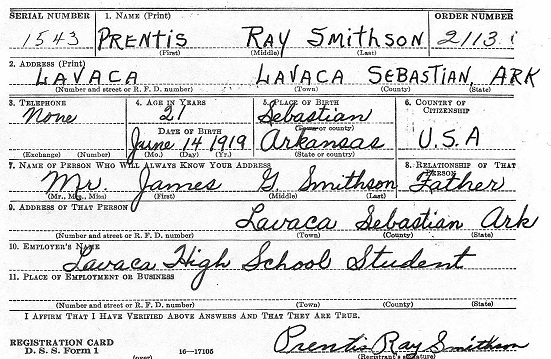 SERIAL NUMBER 1. NAME (Print) ORDER NUMBER
1543 PRENTIS RAY SMITHSON 2113
(First) (Middle) (Last)
2. ADDRESS (Print)
LAVACA LAVACA SEBASTIAN, ARK
(Number and street or R. F. D. number) (Town) (County) (State)
3. TELEPHONE 4. AGE IN YEARS 5. PLACE OF BIRTH 6. COUNTRY OF CITIZENSHIP
None 21 Sebastian
(Town or county)
DATE OF BIRTH
June 14 1919 Arkansas U.S.A
(Exchange) (Number) (Mo.) (Day) (Yr.) (State or country)
7. NAME OF PERSON WHO WILL ALWAYS KNOW YOUR ADDRESS 8. RELATIONSHIP OF THAT PERSON
Mr. James G. Smithson Father
(Mr., Mrs., Miss) (First) (Middle) (Last)
9. ADDRESS OF THAT PERSON
Lavaca Sebastian Ark
(Number and street or R. F. D. number) (Town) (County) (State)
10. EMPLOYER'S NAME
Lavaca High School Student
11. PLACE OF EMPLOYMENT OR BUSINESS
(Number and street or R. F. D. number) (Town) (County) (State)
I AFFIRM THAT I HAVE VERIFIED ABOVE ANSWERS AND THAT THEY ARE TRUE.
REGISTRATION CARD Prentis Ray Smithson
D. S. S. Form 1 (over) 16—17105 Registrant's signature